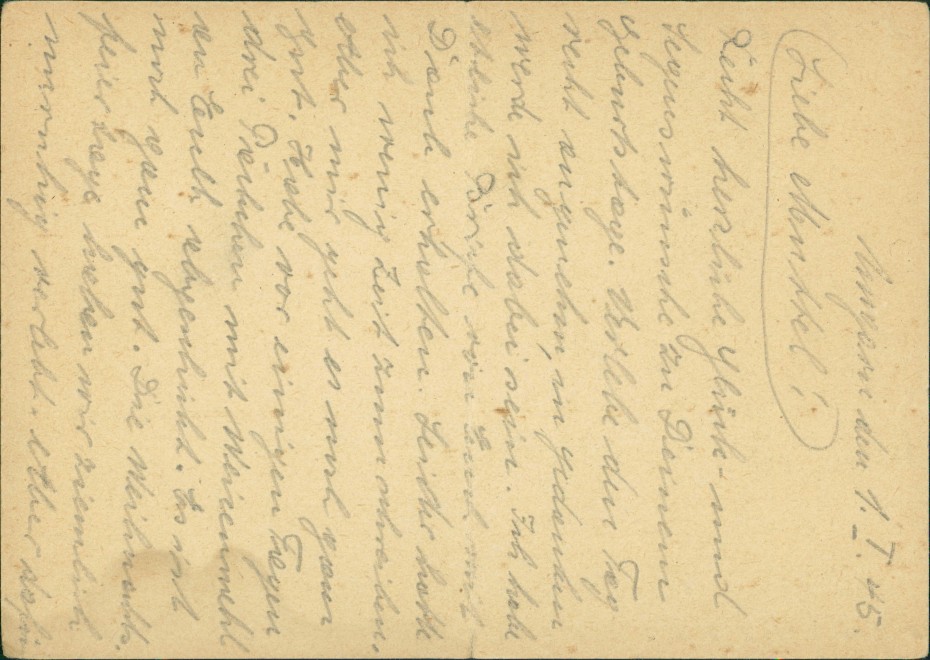 Ungarn den 1. I. 45.
Liebe Menschel!
Recht herzliche Glück- und
Segenswünsche zu Deinem
Geburtstage. Verlebe den Tag
recht angenehm im gedanken
werde ich dabei sein. Ich habe
etliche Briefe von Euch mit
Dank erhalten. Leider hatte
ich wenig Zeit zum schreiben.
Aber mir geht es noch ganz
gut. Habe vor einigen Tagen
drei Päckchen mit Weizenmehl
an Euch abgeschickt. Es ist
noch ganz gut. Die Weihnachts-
feiertage haben wir ziemlich
unruhig verlebt. Aber